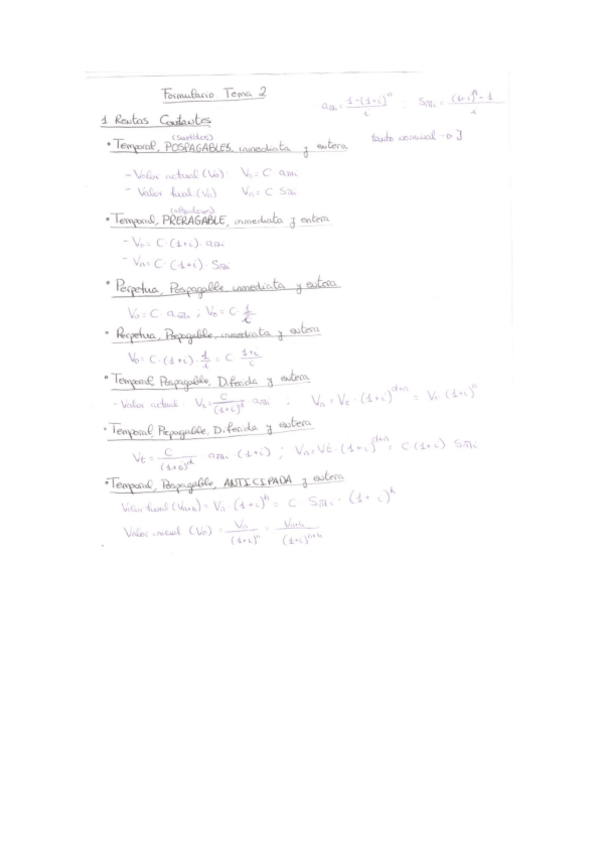 Formulario Tema 2
a_n̅|i = 1-(1+i)^n / i ; S_n̅|i = (1+i)^n - 1 / i
1 Rentas Constantes
(Sueldos)
• Temporal, POSPAGABLES, inmediata y entera
tanto nominal → J
- Valor actual (V₀): V₀ = C a_n̅|i
- Valor final: (Vn) Vn = C S_n̅|i
• Temporal, PRERAGABLE, inmediata y entera
- V₀ = C·(1+i)·a_n̅|i
- Vn = C·(1+i)·S_n̅|i
• Perpetua, Pospagable inmediata y entera
V₀ = C·a_∞̅|i ; V₀ = C·1/i
• Perpetua, Prepagable, inmediata y entera
V₀ = C·(1+i)·1/i = C 1+i/i
• Temporal, Pospagable, Diferida y entera
- Valor actual: Vt = C/(1+i)^d a_n̅|i ; Vn = Vt·(1+i)^d+n = Vn·(1+i)^n
• Temporal, Prepagable, Diferida y entera
Vt = C/(1+i)^d · a_n̅|i·(1+i) ; Vn = Vt·(1+i)^d+n = C·(1+i) S_n̅|i
• Temporal, Pospagable, ANTICIPADA y entera
Valor final (Vn+h) = Vn·(1+i)^h = C·S_n̅|i·(1+i)^h
Valor inicial (V₀) = Vn/(1+i)^n = Vn+h/(1+i)^n+h